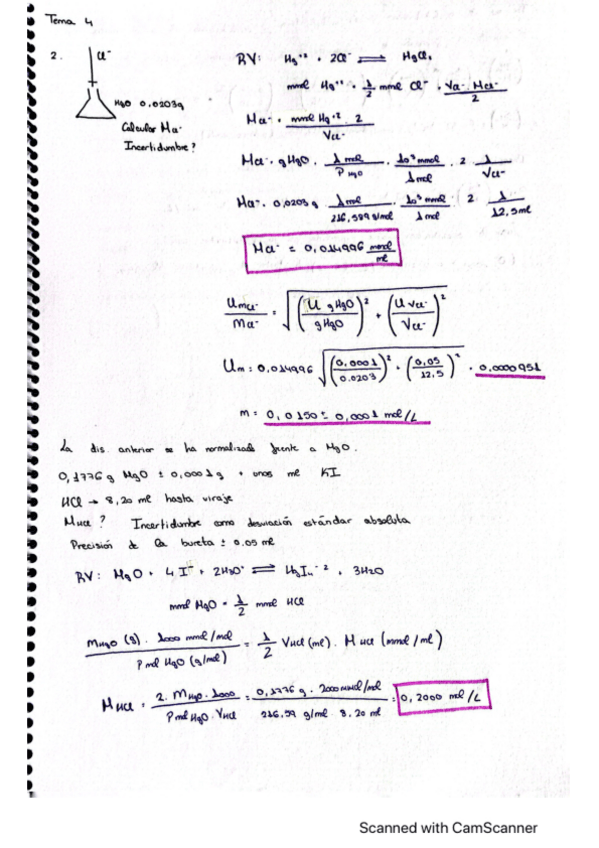 Tema 4
2.
Cl⁻
HgO 0,0203g
Calcular M Cl⁻
Incertidumbre?
RV: Hg⁺² + 2Cl⁻ ⇌ HgCl₂
mmol Hg⁺² = 1/2 mmol Cl⁻ = VCl⁻ · MCl⁻ / 2
MCl⁻ = mmol Hg⁺² · 2 / VCl⁻
MCl⁻ = g HgO · 1 mol / P HgO · 10³ mmol / 1 mol · 2 · 1 / VCl⁻
MCl⁻ = 0,0203 g · 1 mol / 216,589 g/mol · 10³ mmol / 1 mol · 2 · 1 / 12,5 ml
MCl⁻ = 0,014996 mmol / ml
U mCl⁻ / MCl⁻ = √( (U gHgO / gHgO)² + (U VCl⁻ / VCl⁻)² )
Um = 0,014996 √( (0,0001 / 0.0203)² + (0,05 / 12,5)² ) = 0,0000951
m = 0,0150 ± 0,0001 mol/L
La dis. anterior se ha normalizado frente a HgO.
0,1776 g HgO ± 0,0001 g + unos ml KI
HCl → 8,20 ml hasta viraje
MHCl? Incertidumbre como desviación estándar absoluta
Precisión de la bureta ± 0.05 ml
RV: HgO + 4I⁻ + 2H3O⁺ ⇌ HgI₄⁻² + 3H2O
mmol HgO = 1/2 mmol HCl
MHgO (g) · 1000 mmol/mol / Pmol HgO (g/mol) = 1/2 VHCl (ml) · MHCl (mmol/ml)
MHCl = 2 · MHgO · 1000 / Pmol HgO · VHCl = 0,1776 g · 2000 mmol/mol / 216,59 g/ml · 8,20 ml = 0,2000 mol/L
Scanned with CamScanner